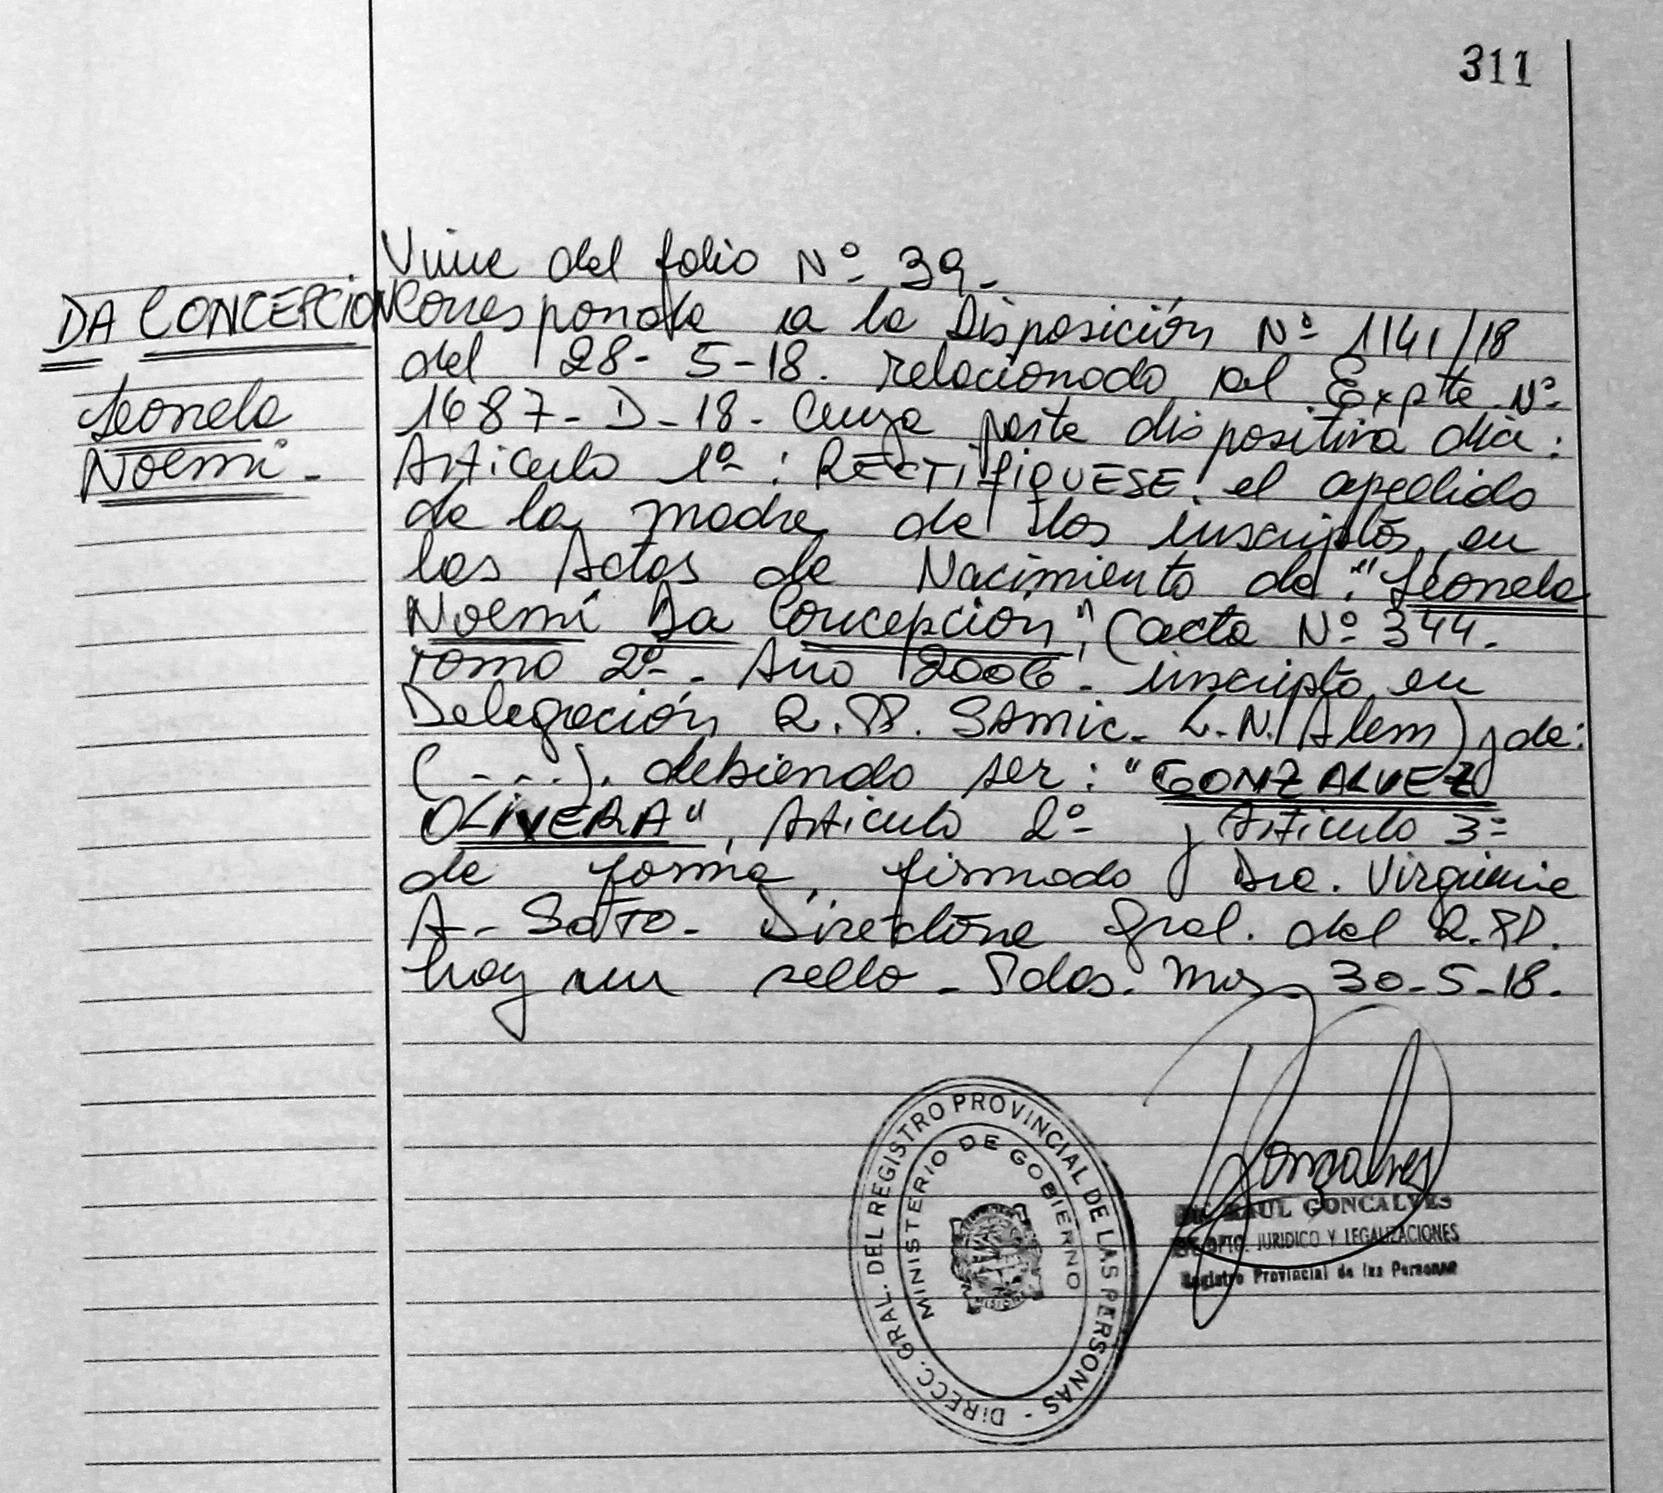 311
Viene del folio Nº 39.
DA CONCEPCION
Leonela
Noemi.
Corresponde a la Disposición Nº 1141/18
del 28-5-18. relacionado al Expte. Nº
1687-D-18. Cuya parte dispositiva dice:
Artículo 1º: RECTIFIQUESE el apellido
de la madre de los inscriptos en
las Actas de Nacimiento de: "Leonela
Noemí Da Concepción", (acta Nº 344.
Tomo 2º. Año 2006. inscripto en
Delegación R.PP. SAMIC. L.N. Alem) y de:
(---). debiendo ser: "GONZALVEZ
OLIVERA", Artículo 2º y Artículo 3º
de forma, firmado Dra. Virginia
A. SOTO. Directora Gral. del R.PP.
hay un sello. Pdas. Mnes 30-5-18.
DIRECC. GRAL. DEL REGISTRO PROVINCIAL DE LAS PERSONAS -
MINISTERIO DE GOBIERNO
MISIONES
Gonzalves
RAUL GONCALVES
DPTO. JURIDICO Y LEGALIZACIONES
Registro Provincial de las Personas